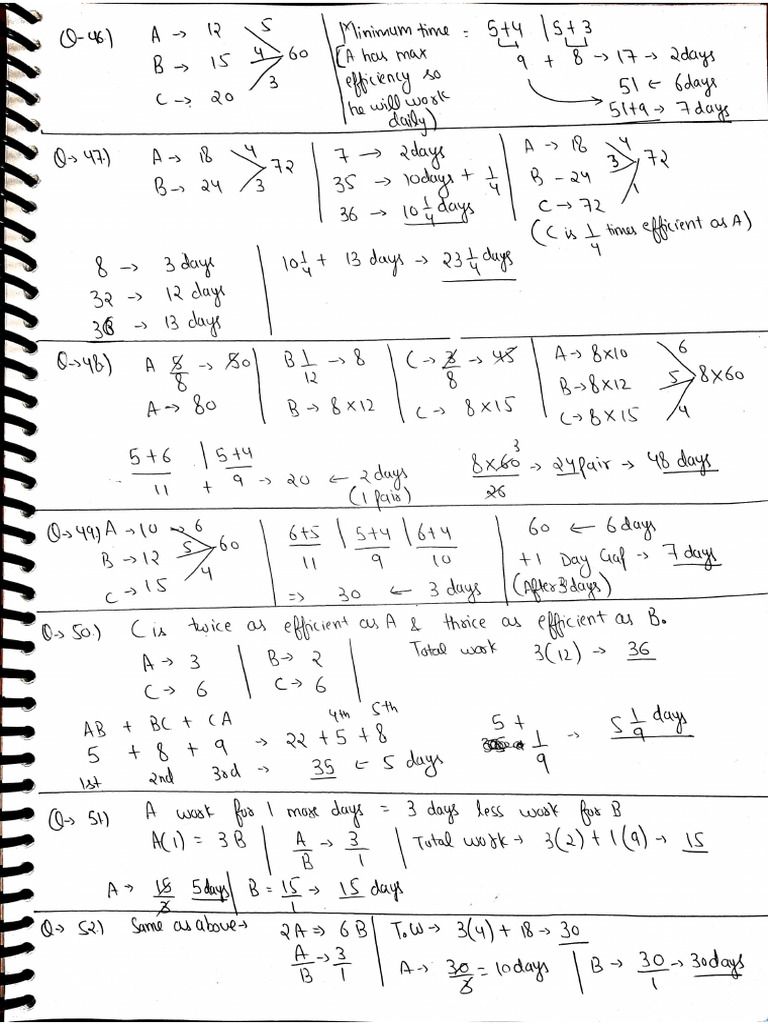 Q-46) A → 12 5
B → 15 4 60
C → 20 3
Minimum time = 5+4 | 5+3
(A has max efficiency so he will work daily)
9 + 8 → 17 → 2 days
51 ← 6 days
51+9 → 7 days
Q→ 47.) A → 18 4
B → 24 3 72
7 → 2 days
35 → 10 days + 1/4
36 → 10 1/4 days
A → 18 4
B - 24 3 72
C → 72 1
(C is 1/4 times efficient as A)
8 → 3 days
32 → 12 days
36 → 13 days
10 1/4 + 13 days → 23 1/4 days
Q→ 48.) A 5/8 → 50
A → 80
B 1/12 → 8
B → 8×12
C → 3/8 → 45
C → 8×15
A → 8×10 6
B → 8×12 5 8×60
C → 8×15 4
5+6 | 5+4
11 + 9 → 20 ← 2 days
(1 pair)
8×60/20 3 → 24 pair → 48 days
Q→ 49.) A → 10 6
B → 12 5 60
C → 15 4
6+5 | 5+4 | 6+4
11 9 10
=> 30 ← 3 days
60 ← 6 days
+1 Day Gap → 7 days
(After 3 days)
Q→ 50.) C is twice as efficient as A & thrice as efficient as B.
A → 3 | B → 2
C → 6 | C → 6
Total work 3(12) → 36
AB + BC + CA 4th 5th
5 + 8 + 9 → 22 + 5 + 8
1st 2nd 3rd → 35 ← 5 days
5 + 1/9 → 5 1/9 days
Q→ 51.) A work for 1 more days = 3 days less work for B
A(1) = 3B | A/B → 3/1 | Total work → 3(2) + 1(9) → 15
A → 15/3 5 days | B = 15/1 → 15 days
Q→ 52.) Same as above → 2A => 6B | T.W → 3(4) + 18 → 30
A/B → 3/1 | A → 30/3 = 10 days | B → 30/1 → 30 days